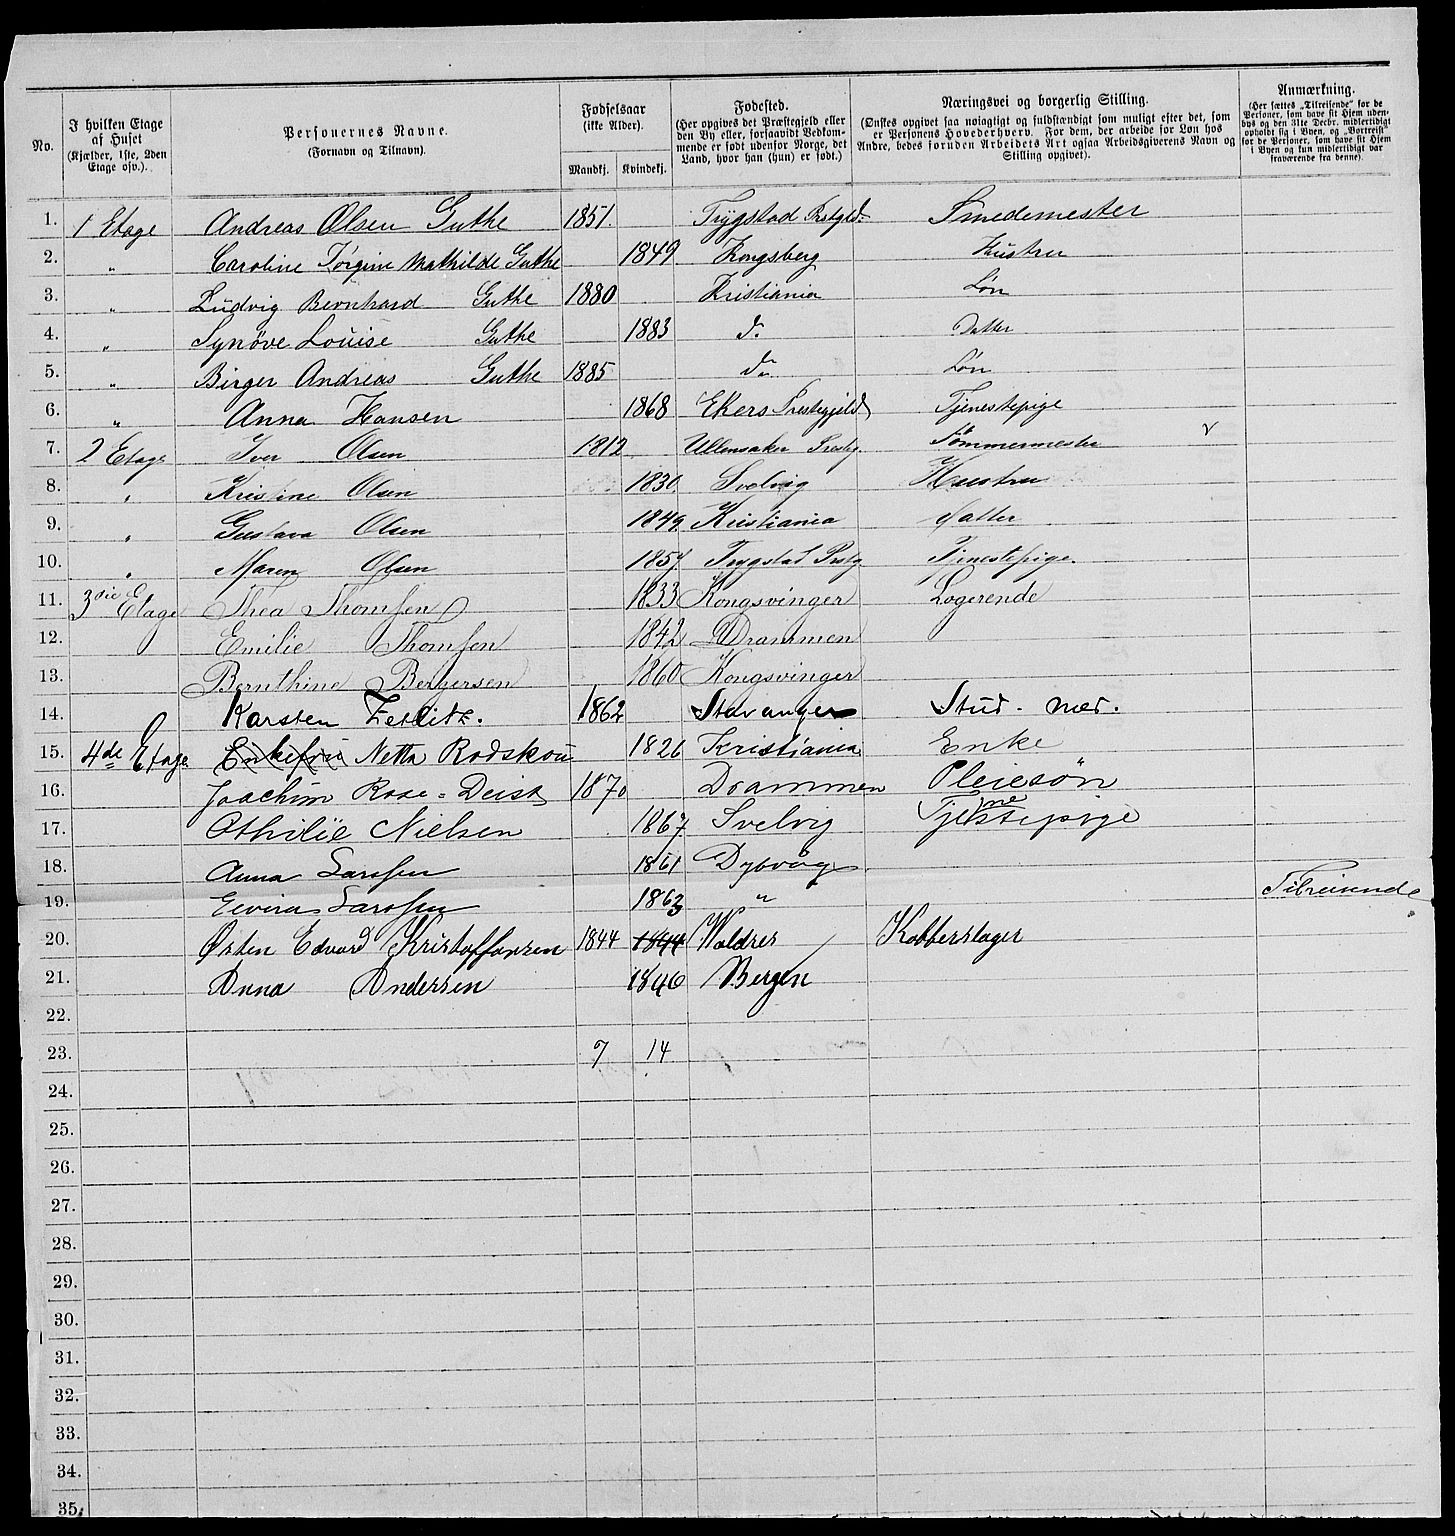 No. | I hvilken Etage af Huset (Kjælder, 1ste, 2den Etage osv.). | Personernes Navne. (Fornavn og Tilnavn). | Fødselsaar (ikke Alder). Mandkj. | Kvindekj. | Fødested. (Her opgives det Præstegjeld eller den By eller, forsaavidt Vedkommende er født udenfor Norge, det Land, hvor han (hun) er født.) | Næringsvei og borgerlig Stilling. (Ønskes opgivet saa nøiagtigt og fuldstændigt som muligt efter det, som er Personens Hovederhverv. For dem, der arbeide for Løn hos Andre, bedes foruden Arbeidets Art ogsaa Arbeidsgiverens Navn og Stilling opgivet). | Anmærkning. (Her sættes „Tilreisende" for de Personer, som have sit Hjem udenbys og den 31te Decbr. midlertidigt opholdt sig i Byen, og „Bortreist" for de Personer, som have sit Hjem i Byen og kun midlertidigt var fraværende fra denne).
1. 1 Etage Andreas Olsen Guthe 1851. Trygstad Prstgld. Smedemester
2. " Caroline Jørgine Mathilde Guthe 1849 Kongsberg Hustru
3. " Ludvig Bernhard Guthe 1880 Kristiania Søn
4. " Synøve Louise Guthe 1883 do Datter
5. " Birger Andreas Guthe 1885 do Søn
6. " Anna Hansen 1868 Ekers Prestegjeld Tjenestepige
7. 2 Etage Iver Olsen 1812 Ullensaker Prestg. Tømmermester v
8. " Kristine Olsen 1830. Svelvig Hustru
9. " Gustava Olsen 1849 Kristiania datter
10. " Maren Olsen 1857. Trygstad Prstg Tjenestepige.
11. 3die Etage Thea Thomsen 1833 Kongsvinger Logerende
12. Emilie Thomsen 1842 Drammen
13. Bernthine Bergersen 1860 Kongsvinger
14. Karsten Zetlitz. 1862 Stavanger Stud. med.
15. 4de Etage Enkefru Netta Rodskou 1826 Kristiania Enke
16. Joachim Rose = Deist 1870 Drammen Pleiesøn
17. Othilie Nielsen 1867 Svelvig Tjenestepige
18. Anna Larssen 1861 Dybvåg
19. Elvira Larssen 1863 " Tilreisende
20. Østen Edvard Kristoffersen 1844 1844 Valdres Kobberslager
21. Anna Andersen 1846 Bergen
22.
23. 7 14
24.
25.
26.
27.
28.
29.
30.
31.
32.
33.
34.
35.